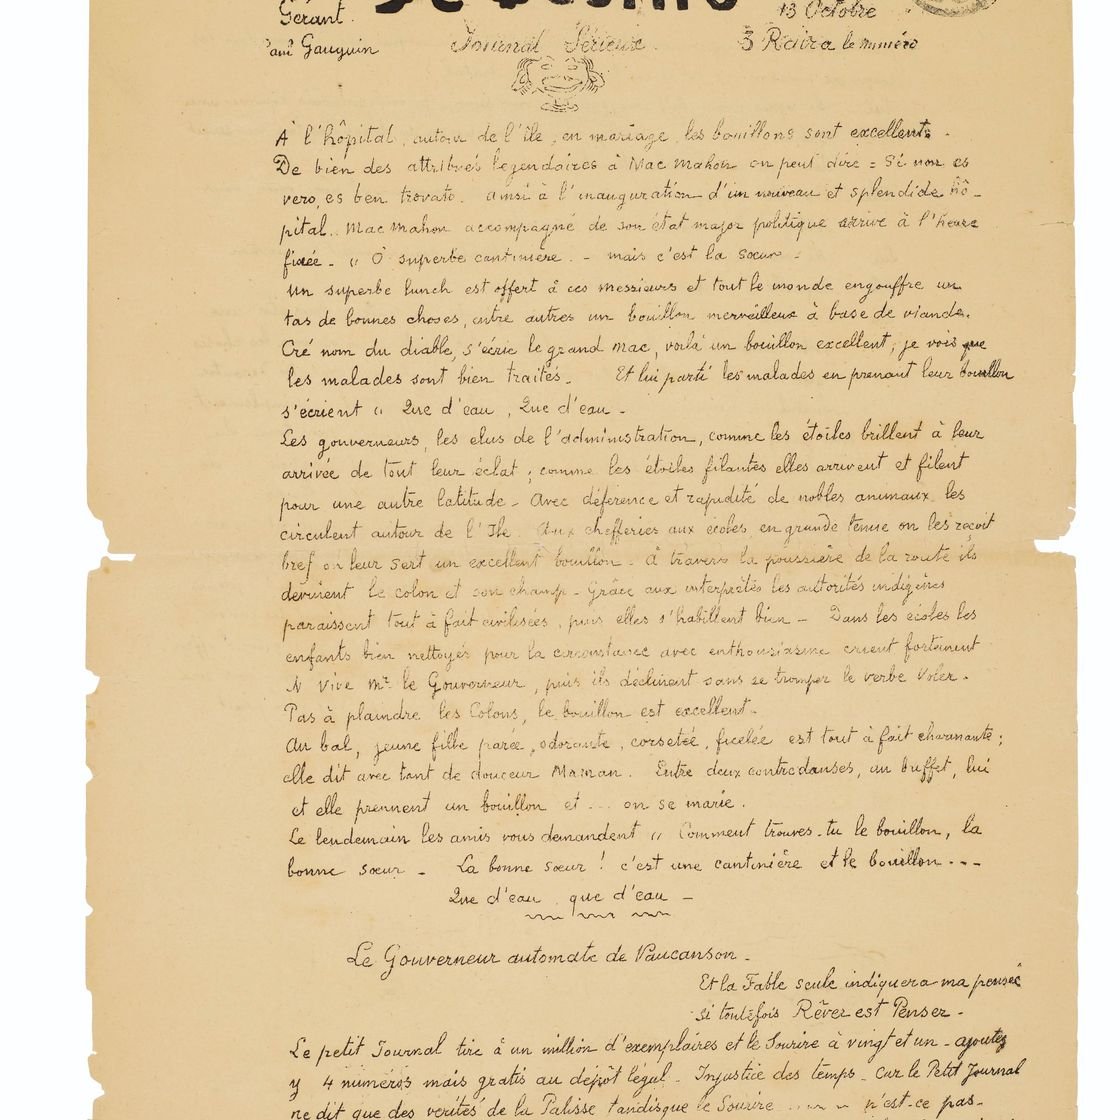 Gérant
Paul Gauguin
Journal Sérieux.
13 Octobre
3 Raira le numéro
À l'hôpital, autour de l'île, en mariage, les bouillons sont excellents.
De bien des attribués légendaires à Mac Mahon on peut dire = Si non es
vero, es ben trovato. ainsi à l'inauguration d'un nouveau et splendide hô-
pital. Mac Mahon accompagné de son état major politique arrive à l'heure
fixée - " O superbe cantinière. - mais c'est la Sœur -
Un superbe lunch est offert à ces messieurs et tout le monde engouffre un
tas de bonnes choses, entre autres un bouillon merveilleux à base de viande.
Cré nom du diable, s'écrie le grand Mac, voilà un bouillon excellent; je vois que
les malades sont bien traités. Et lui parti les malades en prenant leur bouillon
s'écrient " Que d'eau, Que d'eau -
Les gouverneurs, les élus de l'administration, comme les étoiles brillent à leur
arrivée de tout leur éclat; comme les étoiles filantes elles arrivent et filent
pour une autre latitude - Avec déférence et rapidité de nobles animaux les
circulent autour de l'Ile. Aux chefferies aux écoles, en grande tenue on les reçoit
bref on leur sert un excellent bouillon. À travers la poussière de la route ils
devinent le colon et son champ - Grâce aux interprètes les autorités indigènes
paraissent tout à fait civilisées, puis elles s'habillent bien - Dans les écoles les
enfants bien nettoyés pour la circonstance avec enthousiasme crient fortement
Vive Mr le Gouverneur, puis ils déclinent sans se tromper le verbe Voler.
Pas à plaindre les Colons, le bouillon est excellent.
Au bal, jeune fille parée, odorante, corsetée, ficelée est tout à fait charmante;
elle dit avec tant de douceur Maman. Entre deux contredanses, au buffet, lui
et elle prennent un bouillon et ... on se marie.
Le lendemain les amis vous demandent " Comment trouves-tu le bouillon, la
bonne sœur - La bonne sœur ! c'est une cantinière et le bouillon ---
Que d'eau, que d'eau -
Le Gouverneur automate de Vaucanson.
Et la Fable seule indiquera ma pensée
si toutefois Rêver est Penser -
Le petit Journal tire à un million d'exemplaires et le Sourire à vingt et un - ajoutez
y 4 numéros mais gratis au dépôt légal - Injustice des temps - Car le Petit Journal
ne dit que des verités de la Palisse tandisque le Sourire ..... n'est-ce pas-